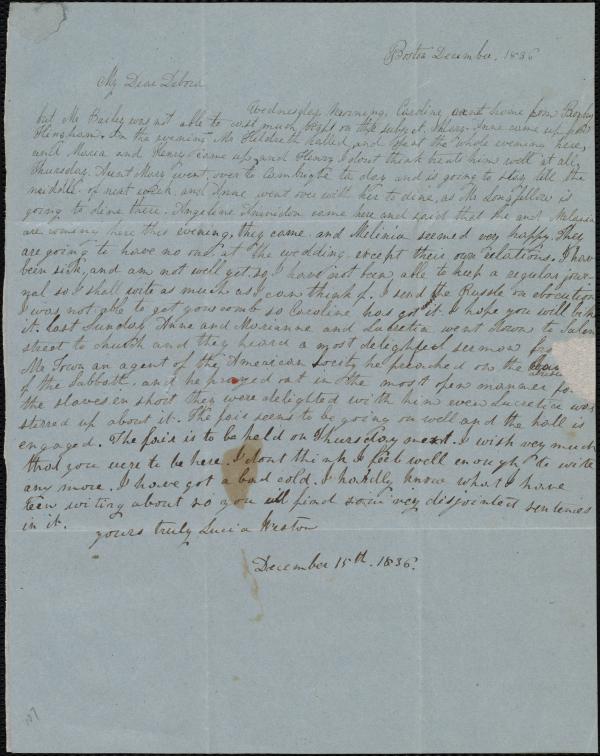 Boston December, 1836
My Dear Debora
Wednesday Morning, Caroline went home from
but Mr Bailey was not able to cast much light on the subject. Anne came up from
Hingham. In the evening Mr Hildreth called and spent the whole evening here,
and Maria and Henry came up, and Henry I dont think treats him well at all,
Thursday. Aunt Mary went over to Cambrigde to day and is going to stay till the
middle of next week, and Anne went over with her to dine, as Mr Longfellow is
going to dine there. Angeline Ammidon came here and said that she and Melania
are coming here this evening, they came, and Melinia seemed very happy. They
are going to have no one, at the wedding except their own relations. I have
been sick, and am not well yet so I have not been able to keep a regular jour-
nal so I shall write as much as I can think of. I send the Russle on
I was not able to get your comb so Caroline has got it. I hope you will like
it. last Sunday Anne and Marianne and Lucretia went down to Salem
street to church and they heard a most delightful sermon from
Mr Town an agent of the American Society he preached on the
of the Sabbath. and he prayed out in the most open manner for
the slaves en short they were delighted with him even Lucretia was
stirred up about it. The fair seems to be going on well and the hall is
engaged. The fair is to be held on Thursday next. I wish very much
that you were to be here. I dont think I feel well enough to write
any more. I have got a bad cold. I hardly know what I have
been writing about so you will find some very disjointed sentences
in it.
yours truly Lucia Weston
December 15th. 1836.